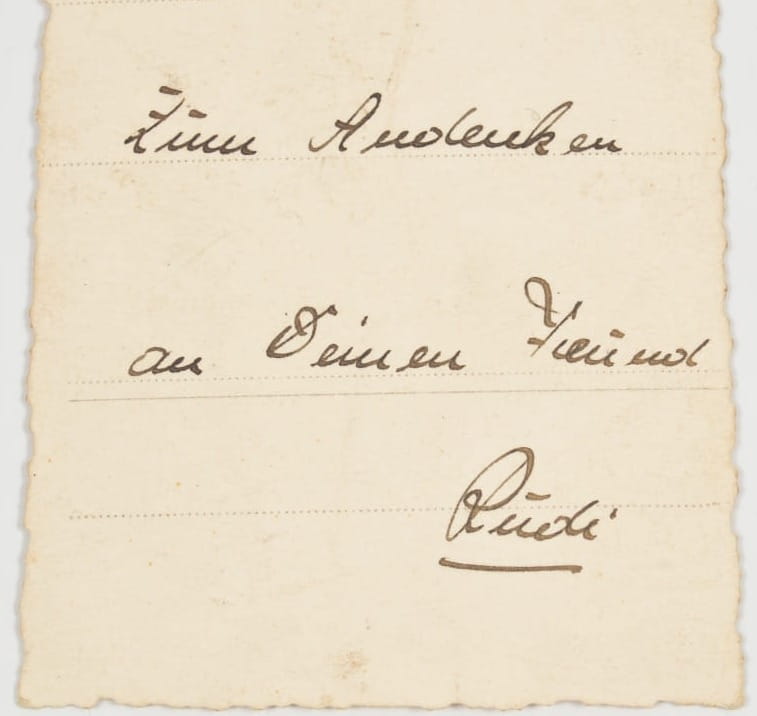 Zum Andenken
an Deinen Freund
Rudi